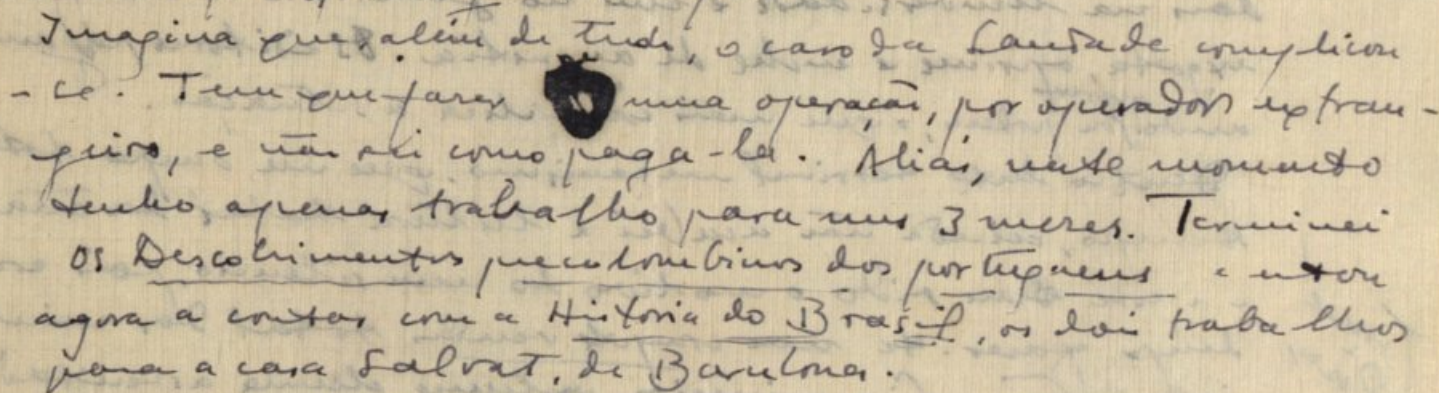 Imagina que, além de tudo, o caso da Saudade complicou
-se. Tem que fazer uma operação, por operador extran-
geiro, e não sei como paga-la. Aliás, neste momento
tenho, apenas trabalho para uns 3 meses. Terminei
os Descobrimentos precolombinos dos portugueses e estou
agora a contas com a Historia do Brasil, os dois trabalhos
para a casa Salvat, de Barcelona.